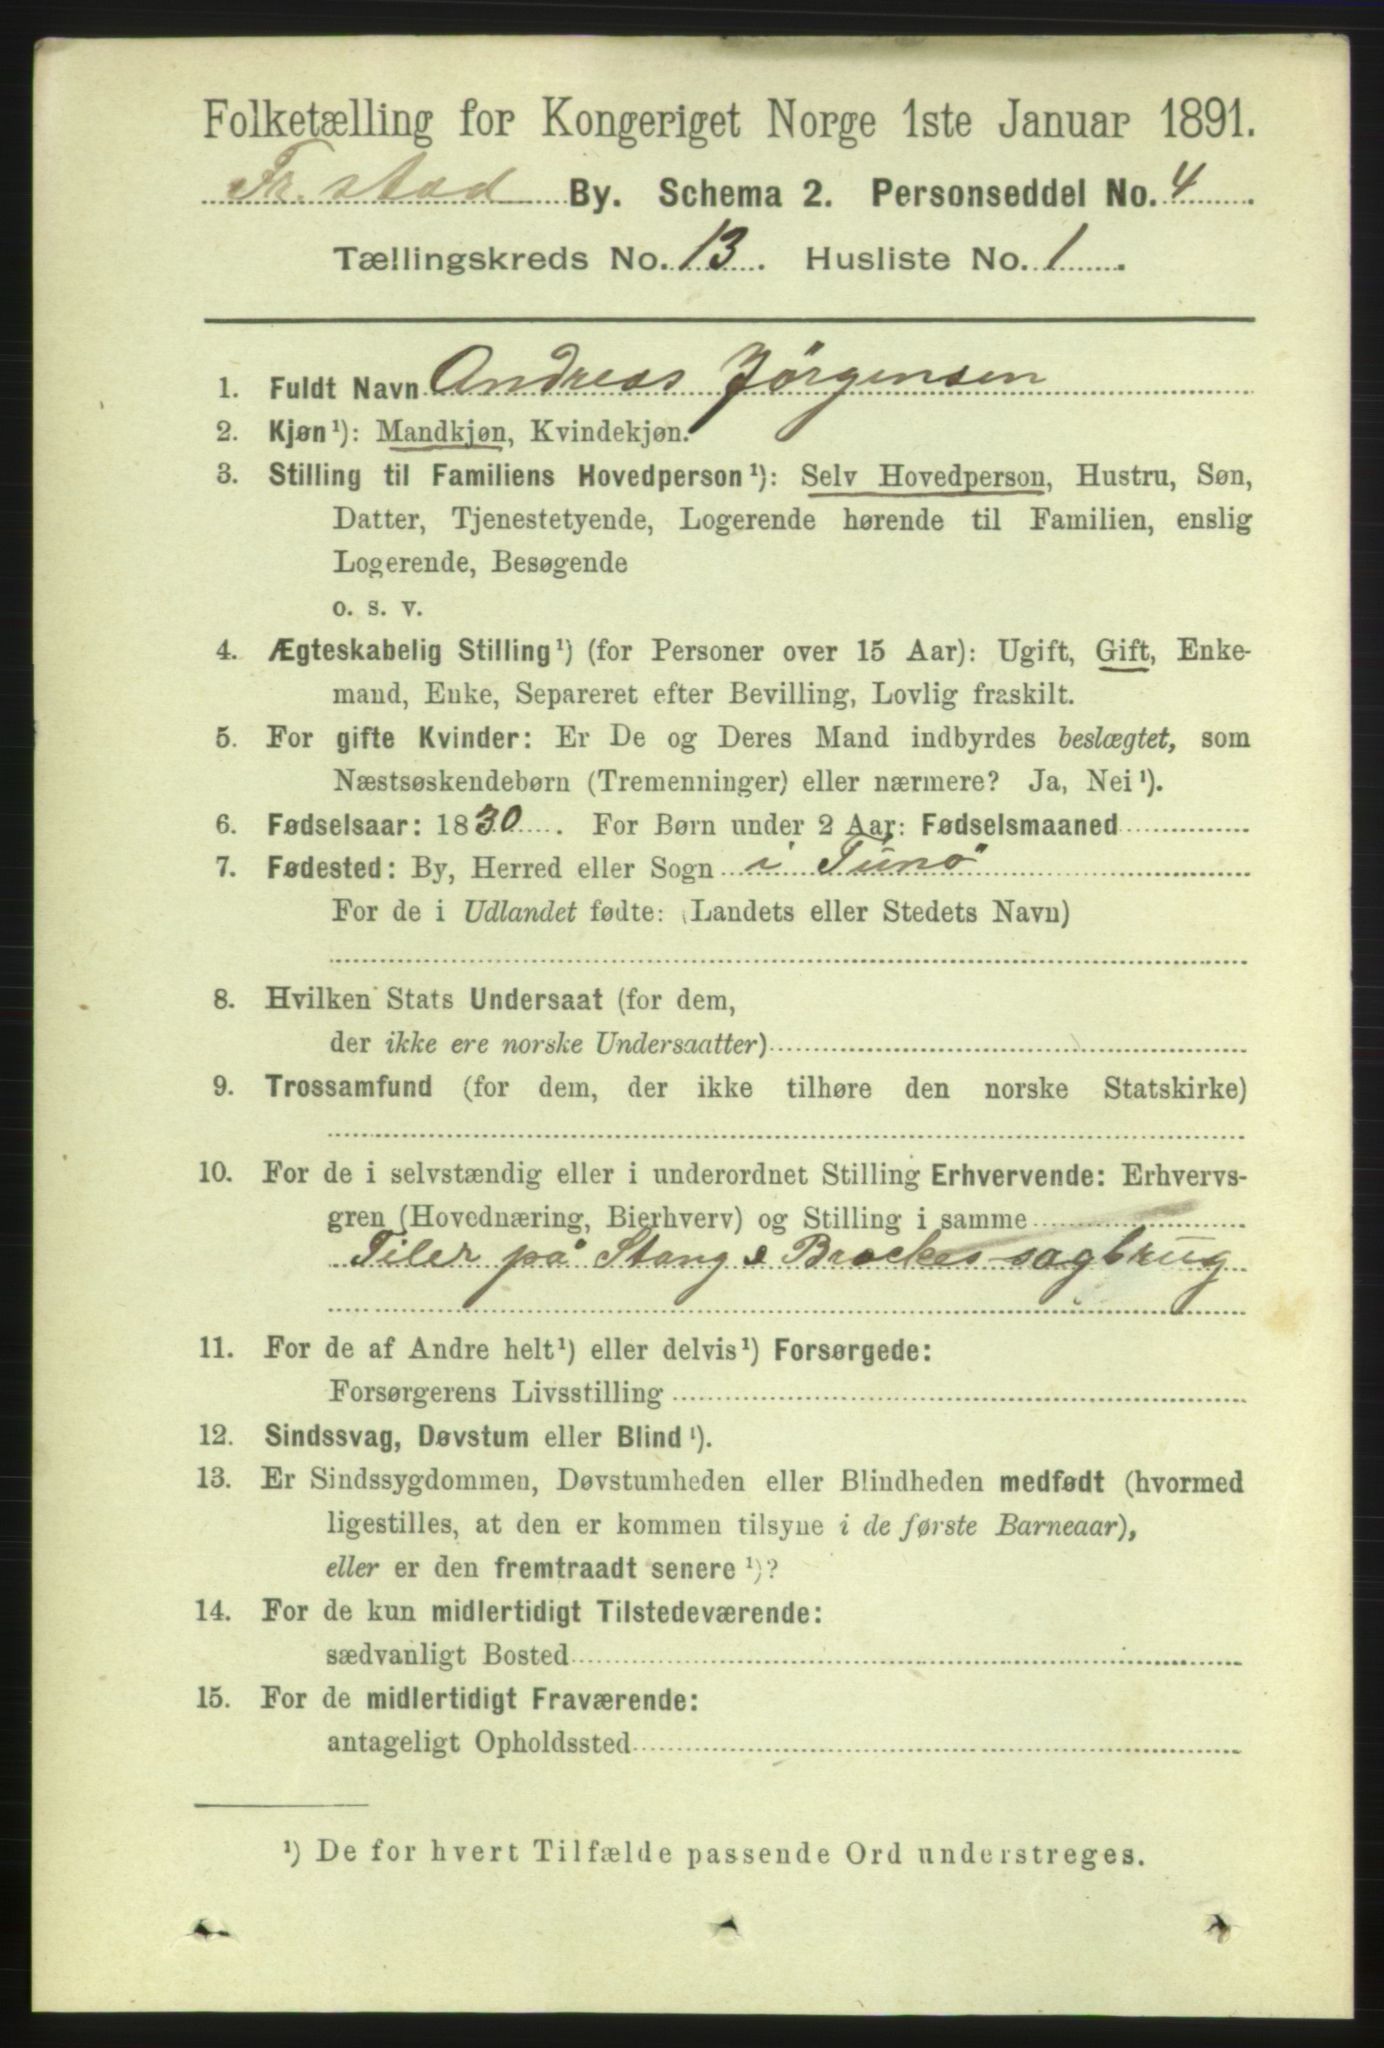 Folketælling for Kongeriget Norge 1ste Januar 1891.
Fr.stad By. Schema 2. Personseddel No. 4
Tællingskreds No. 13. Husliste No. 1.
1. Fuldt Navn Andreas Jörgensen
2. Kjøn¹): Mandkjøn, Kvindekjøn.
3. Stilling til Familiens Hovedperson¹): Selv Hovedperson, Hustru, Søn,
Datter, Tjenestetyende, Logerende hørende til Familien, enslig
Logerende, Besøgende
o. s. v.
4. Ægteskabelig Stilling¹) (for Personer over 15 Aar): Ugift, Gift, Enke-
mand, Enke, Separeret efter Bevilling, Lovlig fraskilt.
5. For gifte Kvinder: Er De og Deres Mand indbyrdes beslægtet, som
Næstsøskendebørn (Tremenninger) eller nærmere? Ja, Nei¹).
6. Fødselsaar: 1830. For Børn under 2 Aar: Fødselsmaaned
7. Fødested: By, Herred eller Sogn i Tunö
For de i Udlandet fødte: (Landets eller Stedets Navn)
8. Hvilken Stats Undersaat (for dem,
der ikke ere norske Undersaatter)
9. Trossamfund (for dem, der ikke tilhøre den norske Statskirke)
10. For de i selvstændig eller i underordnet Stilling Erhvervende: Erhvervs-
gren (Hovednæring, Bierhverv) og Stilling i samme
Filer på Stang & Brockes sagbrug
11. For de af Andre helt¹) eller delvis¹) Forsørgede:
Forsørgerens Livsstilling
12. Sindssvag, Døvstum eller Blind¹).
13. Er Sindssygdommen, Døvstumheden eller Blindheden medfødt (hvormed
ligestilles, at den er kommen tilsyne i de første Barneaar),
eller er den fremtraadt senere¹)?
14. For de kun midlertidigt Tilstedeværende:
sædvanligt Bosted
15. For de midlertidigt Fraværende:
antageligt Opholdssted
¹) De for hvert Tilfælde passende Ord understreges.